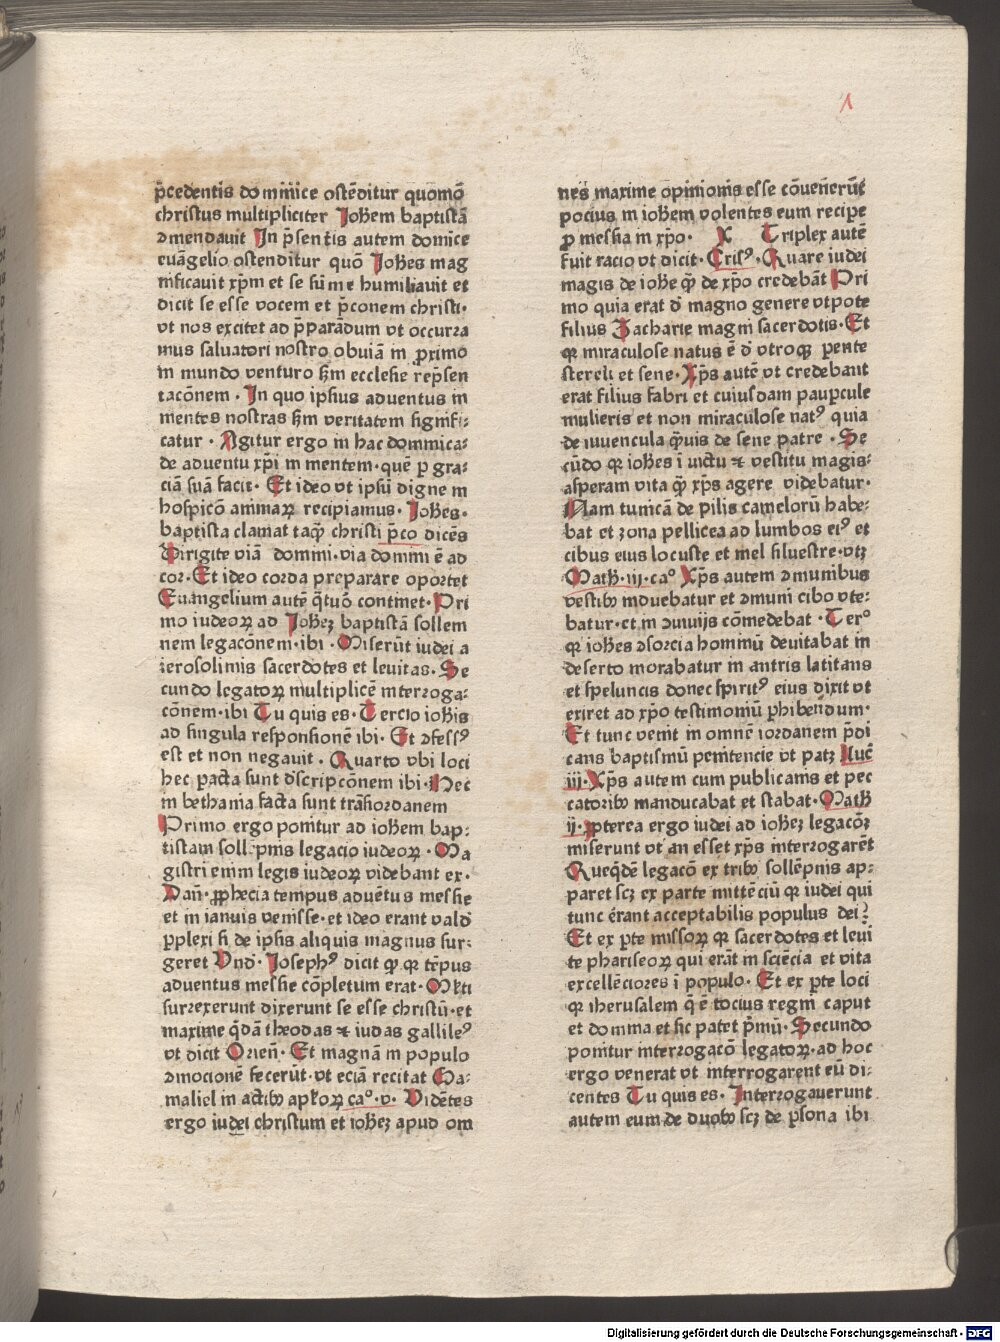 1
p̄cedentis dominice ostēditur quomō
christus multipliciter Joħem baptistā
ↄmendauit In p̄sentis autem domīce
euāgelio ostenditur quō Joħes mag
nificauit xp̄m et se sūme humiliauit et
dicit se esse vocem et p̄conem christi·
vt nos excitet ad p̄parādum vt occurra
mus saluatori nostro obuiā in ꝓximo
in mundo venturo scd̄m ecclesie rep̄sen
tacōnem · In quo ipsius aduentus in
mentes nostras scd̄m veritatem significatur
catur · Agitur ergo in hac dominica⸗
de aduentu xp̄i in mentem·quē ꝑ gra⸗
ciā suā facit· Et ideo vt ipsū digne in
hospicō animaꝝ recipiamus· Joħes·
baptista clamat taqꝫ̄ christi p̄co dicēs
Dirigite viā domini·via domini ē ad
cor·Et ideo corda preparare oportet
Euangelium autē q̄tuō continet·Pri
mo iudeoꝝ ad Joħeꝫ baptistā sollem
nem legacōnem·ibi·Miserūt iudei a
ierosolimis sacerdotes et leuitas·Se
cundo legatoꝝ multiplicē interroga⸗
cōnem·ibi Tu quis es·Tercio ioħis
ad singula responsionē ibi·Et ↄfessꝰ
est et non negauit·Quarto vbi loci
hec pacta sunt d̄scripcōnem ibi·Hec
in bethania facta sunt trāsiordanem
Primo ergo ponitur ad ioħem bap⸗
tistam soll pnis legacio iudeoꝝ·Ma
gistri enim legis iudeoꝝ videbant ex·
Dan̄·ꝓphecia tempus aduētus messie
et in ianuis venisse·et ideo erant vald̄
ꝑplexi si de ipsis aliquis magnus sur⸗
geret Vnd̄·Josephꝰ dicit ꝙ qꝛ tēpus
aduentus messie cōpletum erat·Mlti
surrexerunt dixerunt se esse christū·et
maxime q̄dā theodas ⁊ iudas gallileꝰ
vt dicit Orien̄·Et magnā in populo
ↄmocionē fecerūt·vt eciā recitat Ga⸗
maliel in actibꝫ apl̄oꝝ ca°·v·Vidētes
ergo iudei christum et ioħeꝫ apud om
nes maxime opinionis esse cōuenerūt
pocius in ioħem volentes eum recipe
ꝓ messia in xp̄o· X Triplex autē
fuit racio vt dicit·Crisꝰ·Quare iudei
magis de ioħe qꝫ̄ de xp̄o credebāt Pri
mo quia erat d̄ magno genere vtpote
filius Zacharie magni sacerdotis·Et
qꝛ miraculose natus ē d̄ vtroqꝫ ꝑente
sterili et sene·Xp̄s autē vt credebant
erat filius fabri et cuiusdam pauꝑcule
mulieris et non miraculose natꝰ quia
de iuuencula q̄uis de sene patre·Se
cūdo qꝛ ioħes ī victu ⁊ vestitu magis⸗
asperam vita qꝫ̄ xp̄s agere videbatur·
Nam tunicā de pilis camelorū habe⸗
bat et zona pellicea ad lumbos eiꝰ et
cibus eius locuste et mel siluestre·vtꝫ
Matħ·iij·ca° Xp̄s autem ↄmunibus
vestibꝫ induebatur et ↄmuni cibo vte⸗
batur·et in ↄuiuijs cōmedebat·Ter°
qꝛ ioħes ↄsorcia hominū deuitabat in
deserto morabatur in antris latitans
et speluncis donec spiritꝰ eius dixit vt
exiret ad xp̄o testimoniū ꝑhibendum·
Et tunc venit in omnē iordanem p̄di
cans baptismū penitencie vt patꝫ Luc̄
iij·Xp̄s autem cum publicanis et pec
catoribꝫ manducabat et stabat·Matħ
ij·ꝓpterea ergo iudei ad ioħeꝫ legacōꝫ
miserunt vt an esset xp̄s interrogarēt
Queqd̄ē legacō ex tribꝫ sollēpnis ap⸗
paret scꝫ ex parte mittēciū qꝛ iudei qui
tunc erant acceptabilis populus dei?
Et ex ꝑte missoꝝ qꝛ sacerdotes et leui
te phariseoꝝ qui erāt in sciēcia et vita
excellēciores ī populo·Et ex ꝑte loci
qꝛ iherusalem q̄ ē tocius regni caput
et domina et sic patet p̄mū·Secundo
ponitur interrogacō legatoꝝ·ad hoc
ergo venerāt vt interrogarent eū di⸗
centes Tu quis es·Interrogauerunt
autem eum de duobꝫ scꝫ de ꝑsona ibi
Digitalisierung gefördert durch die Deutsche Forschungsgemeinschaft · DFG